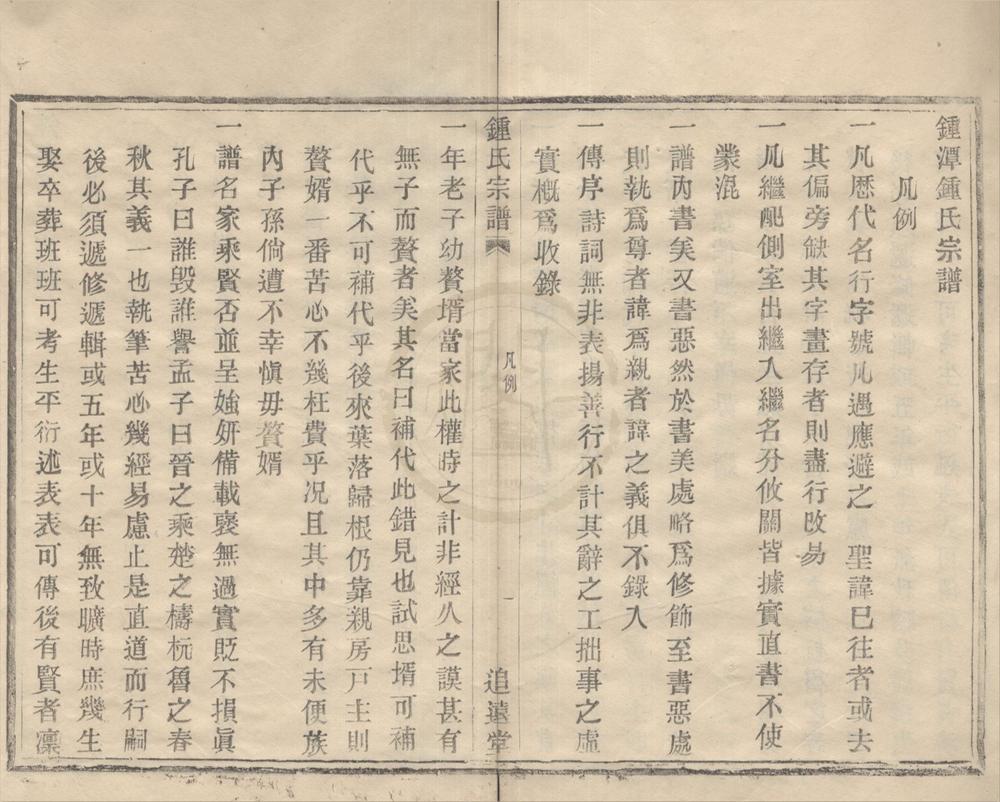 鍾潭鍾氏宗譜
凡例
一凡歷代名行字號凡遇應避之　聖諱已往者或去
其偏旁缺其字畫存者則盡行改易
一凡繼配側室出繼入繼名分攸關皆據實直書不使
蒙混
一譜內書美又書惡然於書美處略爲修飾至書惡處
則執爲尊者諱爲親者諱之義俱不錄入
一傳序詩詞無非表揚善行不計其辭之工拙事之虛
實槪爲收錄
鍾氏宗譜　凡例　一　追遠堂
一年老子幼贅壻當家此權時之計非經久之謨甚有
無子而贅者美其名曰補代此錯見也試思壻可補
代乎不可補代乎後來葉落歸根仍靠親房戸主則
贅婿一番苦心不幾枉費乎况且其中多有未便族
內子孫倘遭不幸愼毋贅婿
一譜名家乘賢否並呈媸妍備載褒無過實貶不損眞
孔子曰誰毀誰譽孟子曰晉之乘楚之檮杌魯之春
秋其義一也執筆苦心幾經易慮止是直道而行嗣
後必須遞修遞輯或五年或十年無致曠時庶幾生
娶卒葬班班可考生平衍述表表可傳後有賢者凜